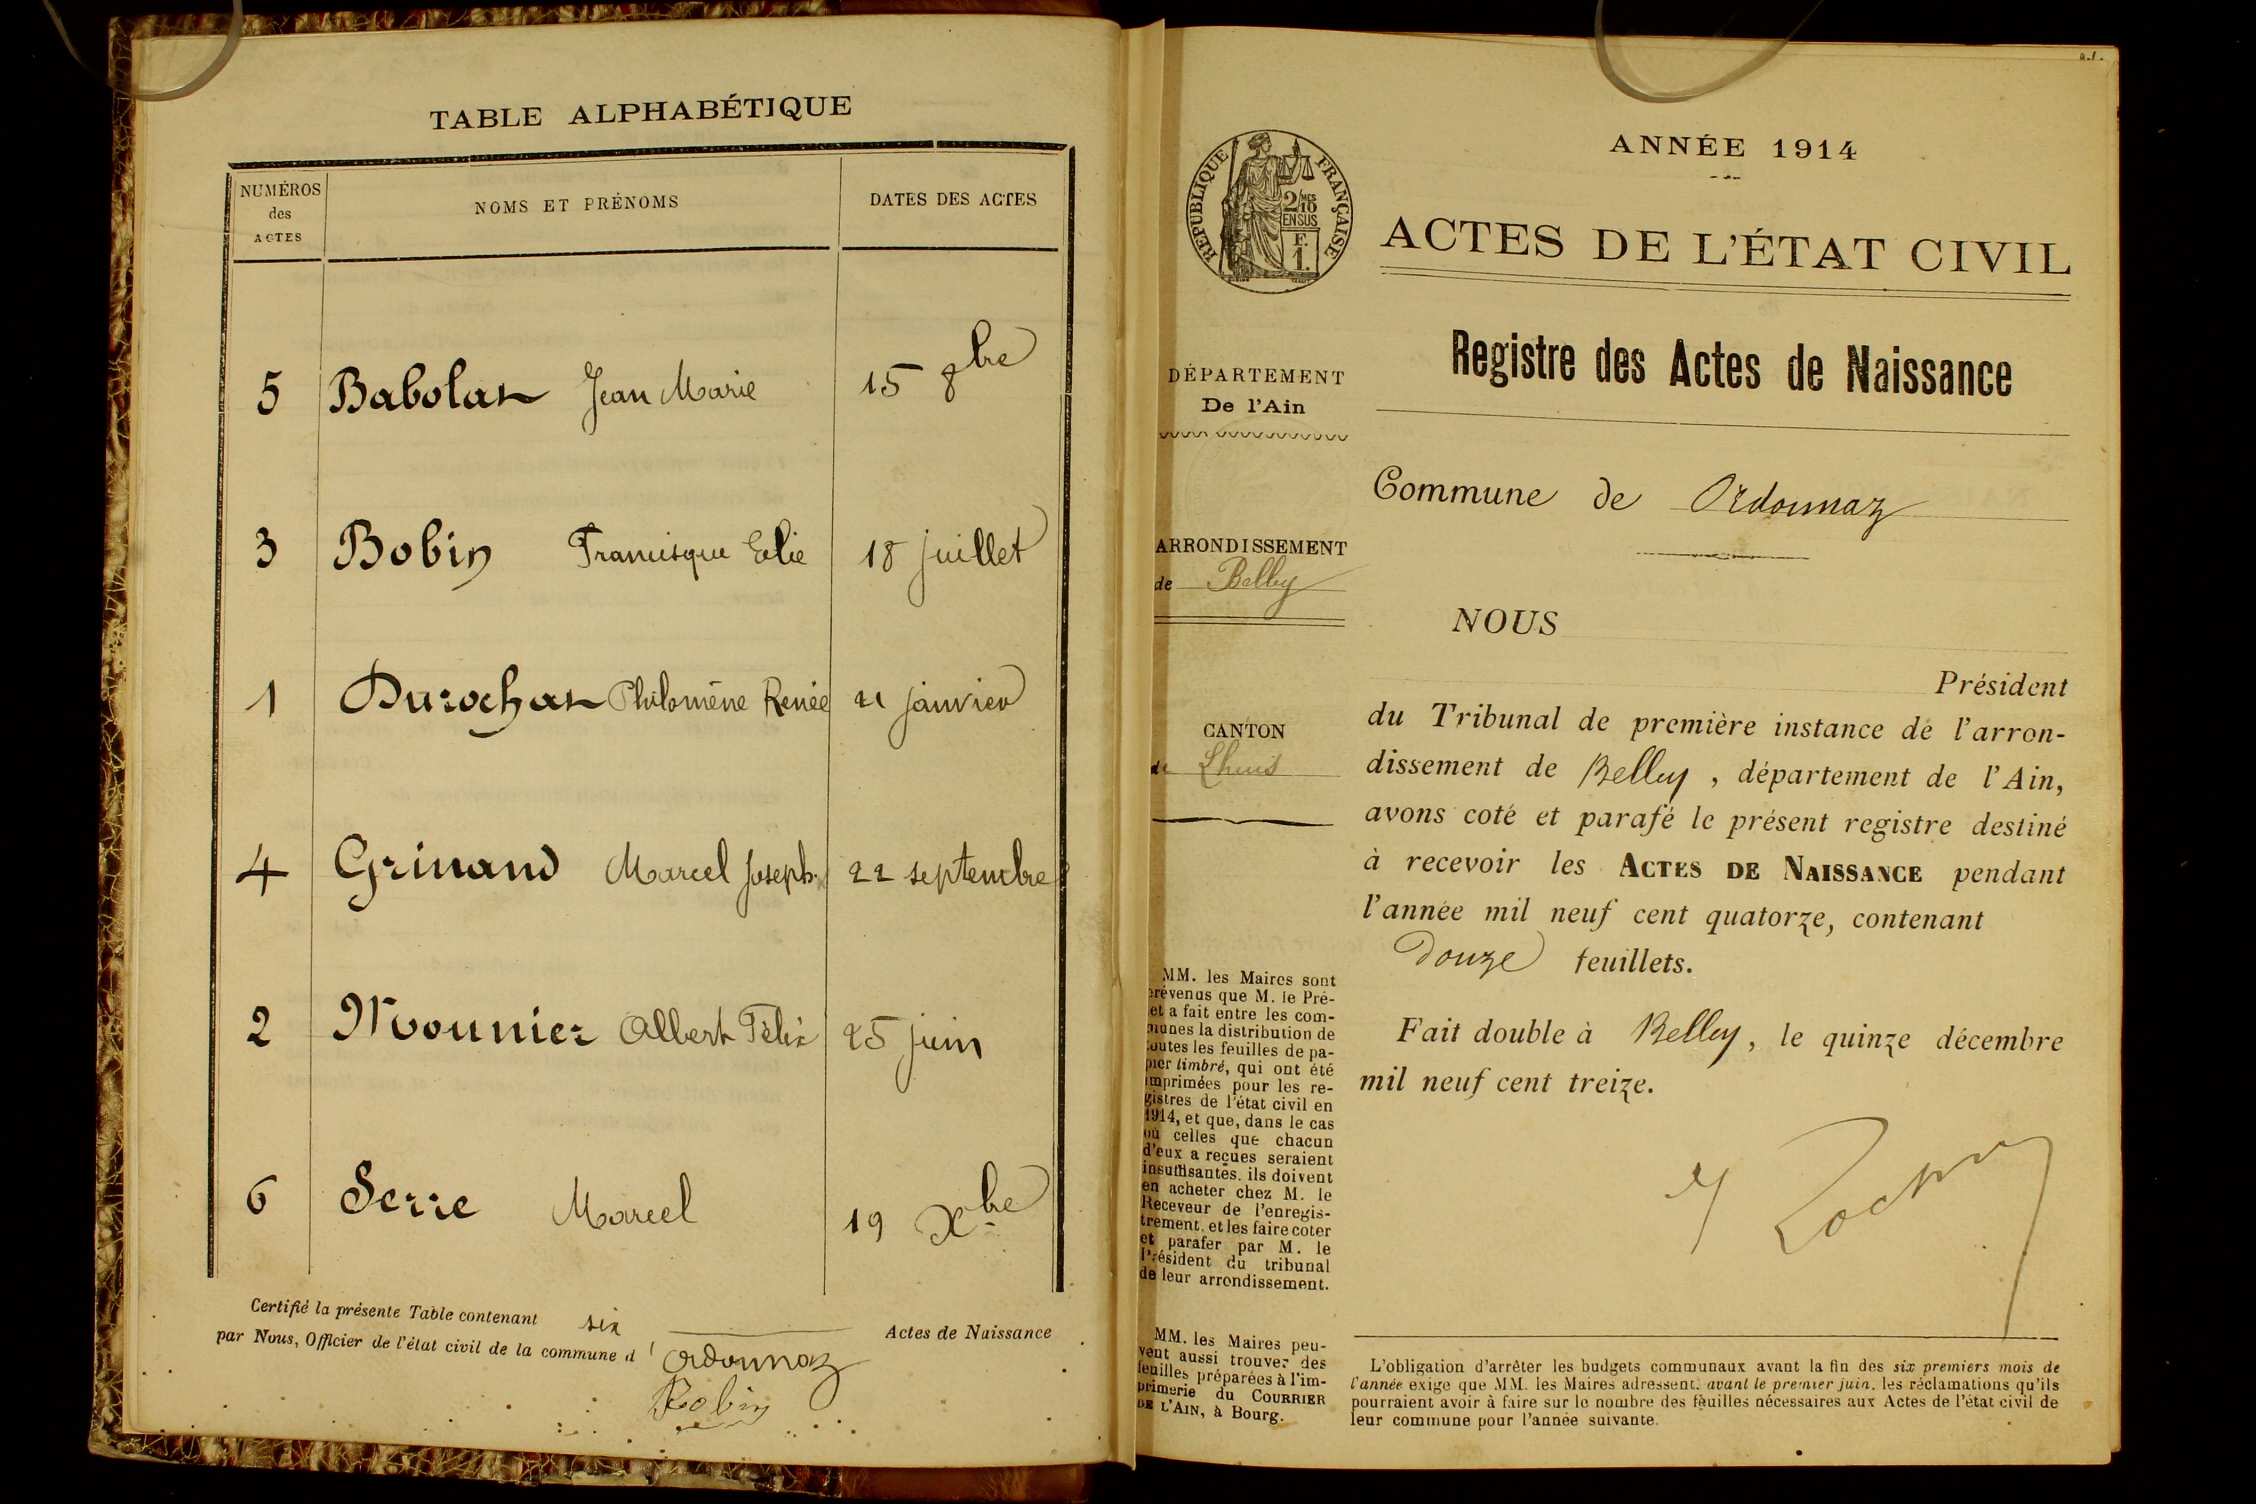 TABLE ALPHABÉTIQUE
NUMÉROS des ACTES
NOMS ET PRÉNOMS
DATES DES ACTES
5 Babolat Jean Marie 15 8bre
3 Bobin Francisque Elie 18 juillet
1 Durochat Philomène Renée 21 janvier
4 Grinand Marcel Joseph 22 septembre
2 Mounier Albert Félix 25 juin
6 Serre Marcel 19 Xbre
Certifié la présente Table contenant six Actes de Naissance
par Nous, Officier de l'état civil de la commune d'Ordonnaz
Bobin
ANNÉE 1914
RÉPUBLIQUE FRANÇAISE
2/10MES
EN SUS
F.
1.
ACTES DE L'ÉTAT CIVIL
Registre des Actes de Naissance
DÉPARTEMENT
De l'Ain
Commune de Ordonnaz
ARRONDISSEMENT
de Belley
CANTON
de Lhuis
NOUS
Président
du Tribunal de première instance de l'arron-
dissement de Belley, département de l'Ain,
avons coté et parafé le présent registre destiné
à recevoir les ACTES DE NAISSANCE pendant
l'année mil neuf cent quatorze, contenant
Douze feuillets.
Fait double à Belley, le quinze décembre
mil neuf cent treize.
MM. les Maires sont
prévenus que M. le Pré-
fet a fait entre les com-
munes la distribution de
toutes les feuilles de pa-
pier timbré, qui ont été
imprimées pour les re-
gistres de l'état civil en
1914, et que, dans le cas
où celles que chacun
d'eux a reçues seraient
insuffisantes, ils doivent
en acheter chez M. le
Receveur de l'enregis-
trement, et les faire coter
et parafer par M. le
Président du tribunal
de leur arrondissement.
MM. les Maires peu-
vent aussi trouver des
feuilles préparées à l'im-
primerie du COURRIER
DE L'AIN, à Bourg.
L'obligation d'arrêter les budgets communaux avant la fin des six premiers mois de
l'année exige que MM. les Maires adressent, avant le premier juin, les réclamations qu'ils
pourraient avoir à faire sur le nombre des feuilles nécessaires aux Actes de l'état civil de
leur commune pour l'année suivante.